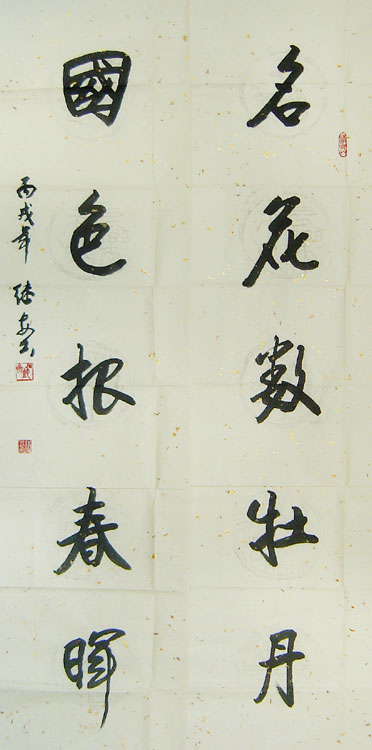 名花数牡丹
國色报春暉
丙戌年 继安书